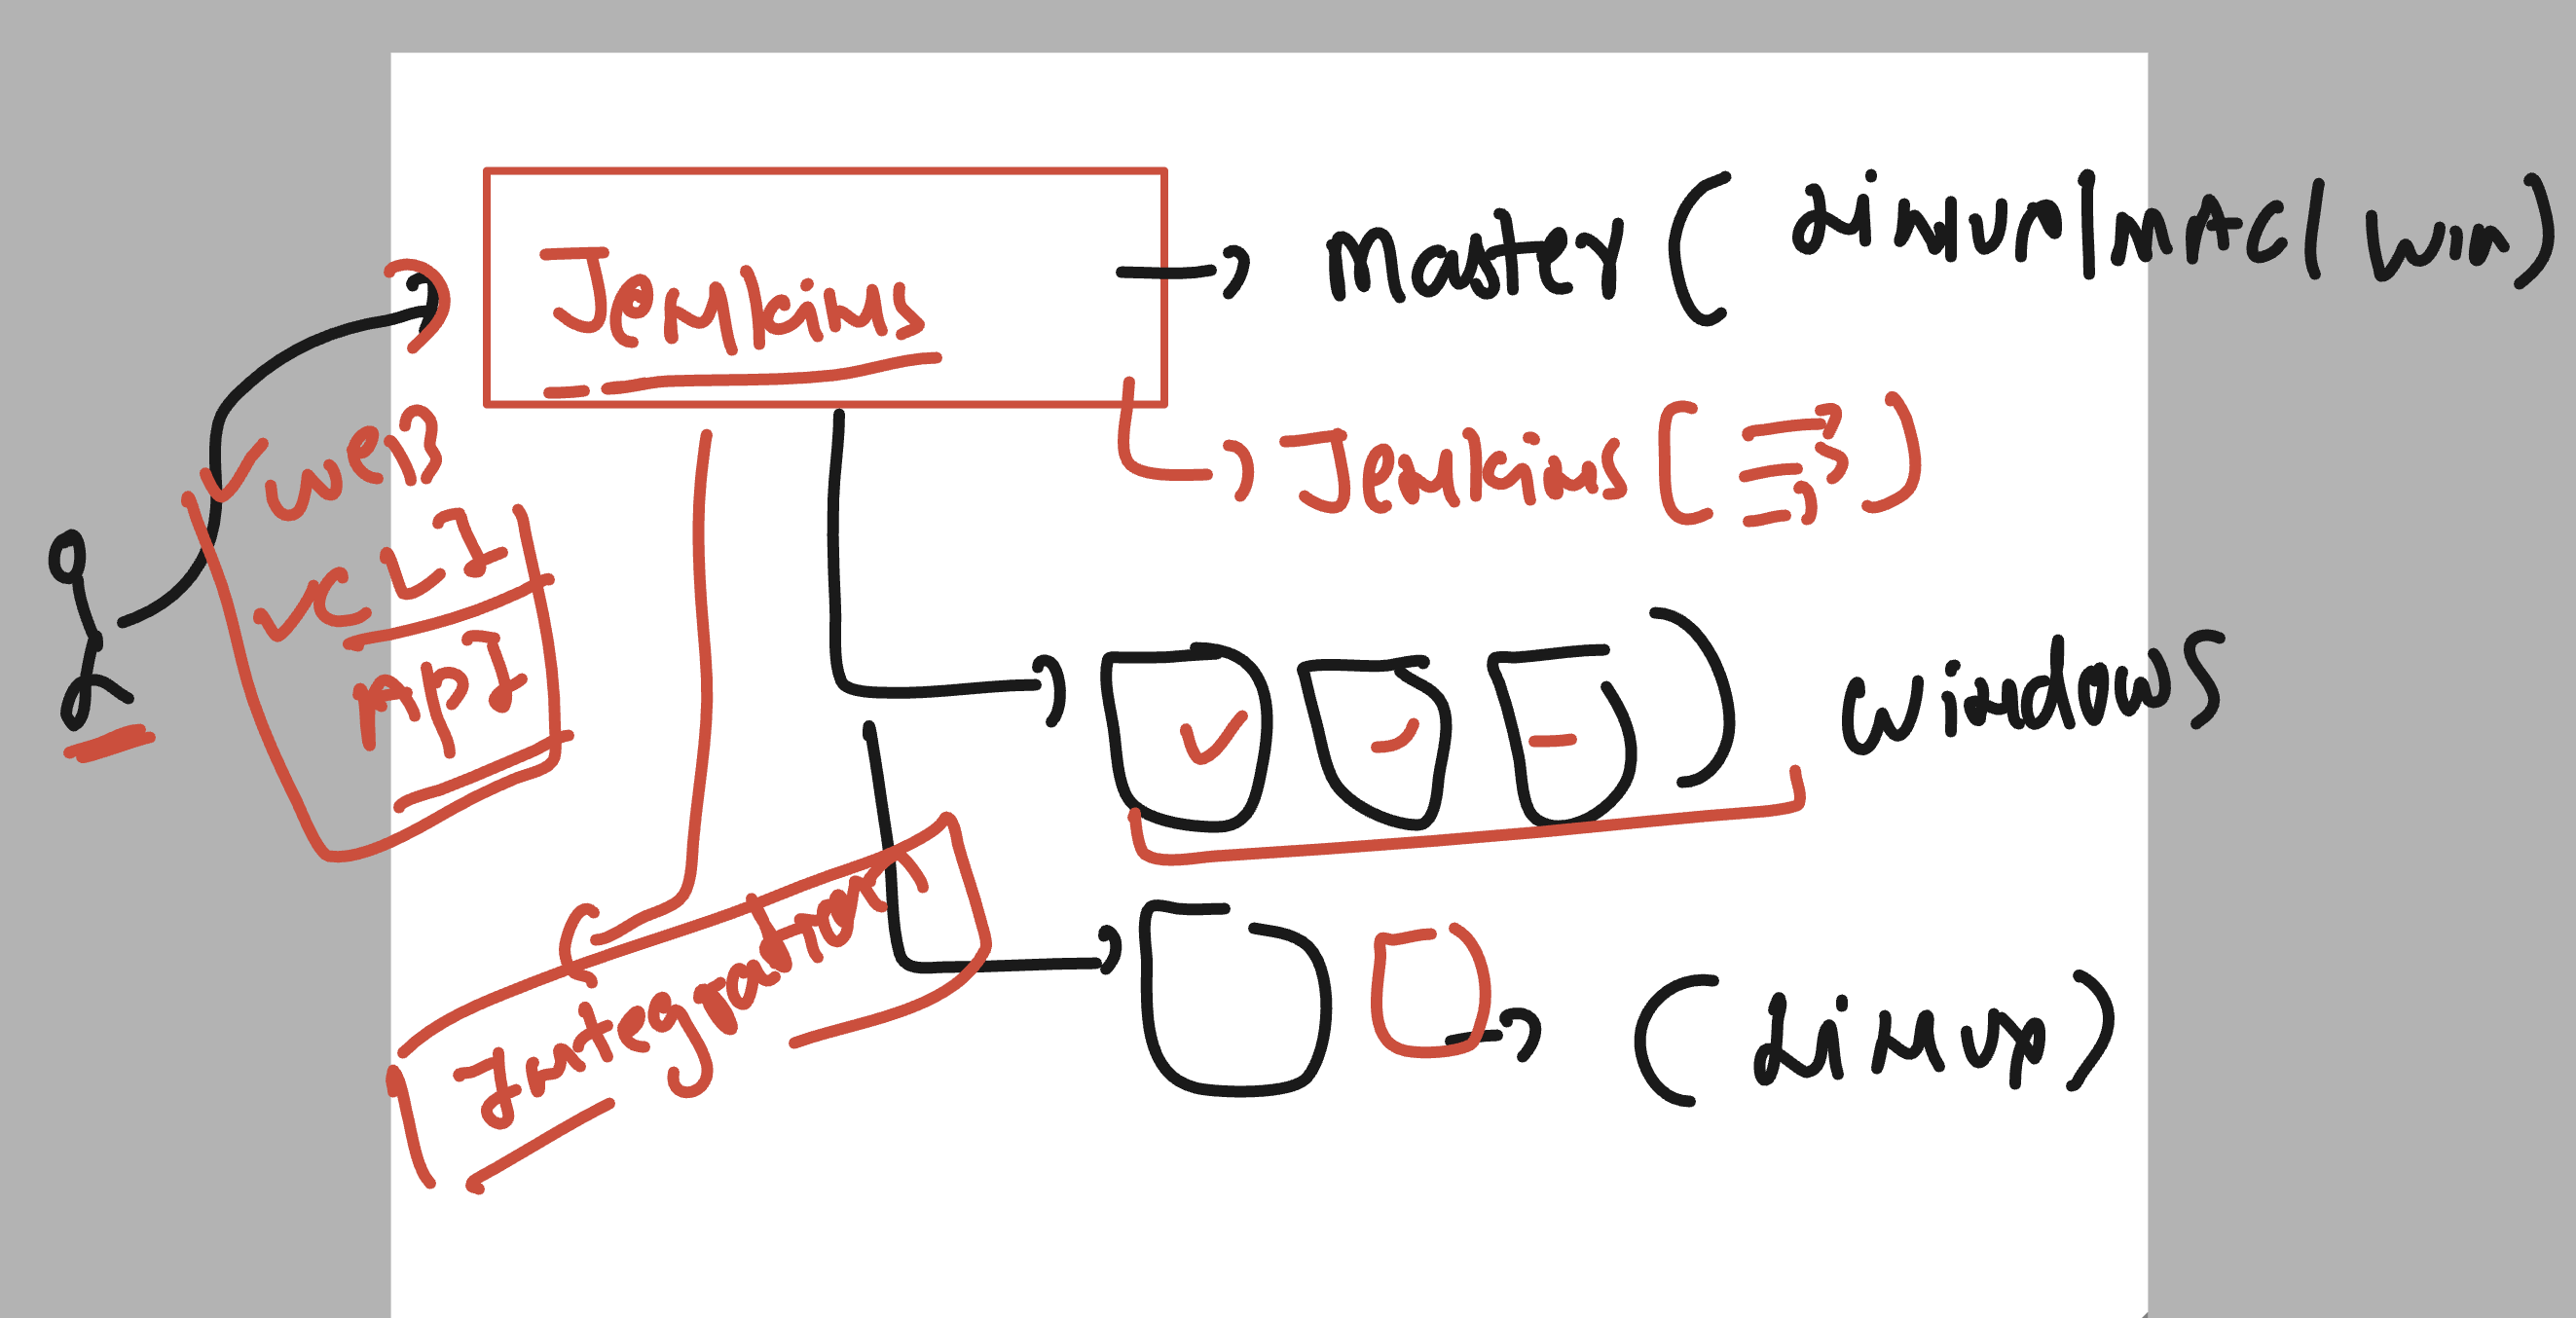 Jenkins
Master (Linux|MAC| Win)
Jenkins
Web
CLI
API
Windows
Integration
(Linux)